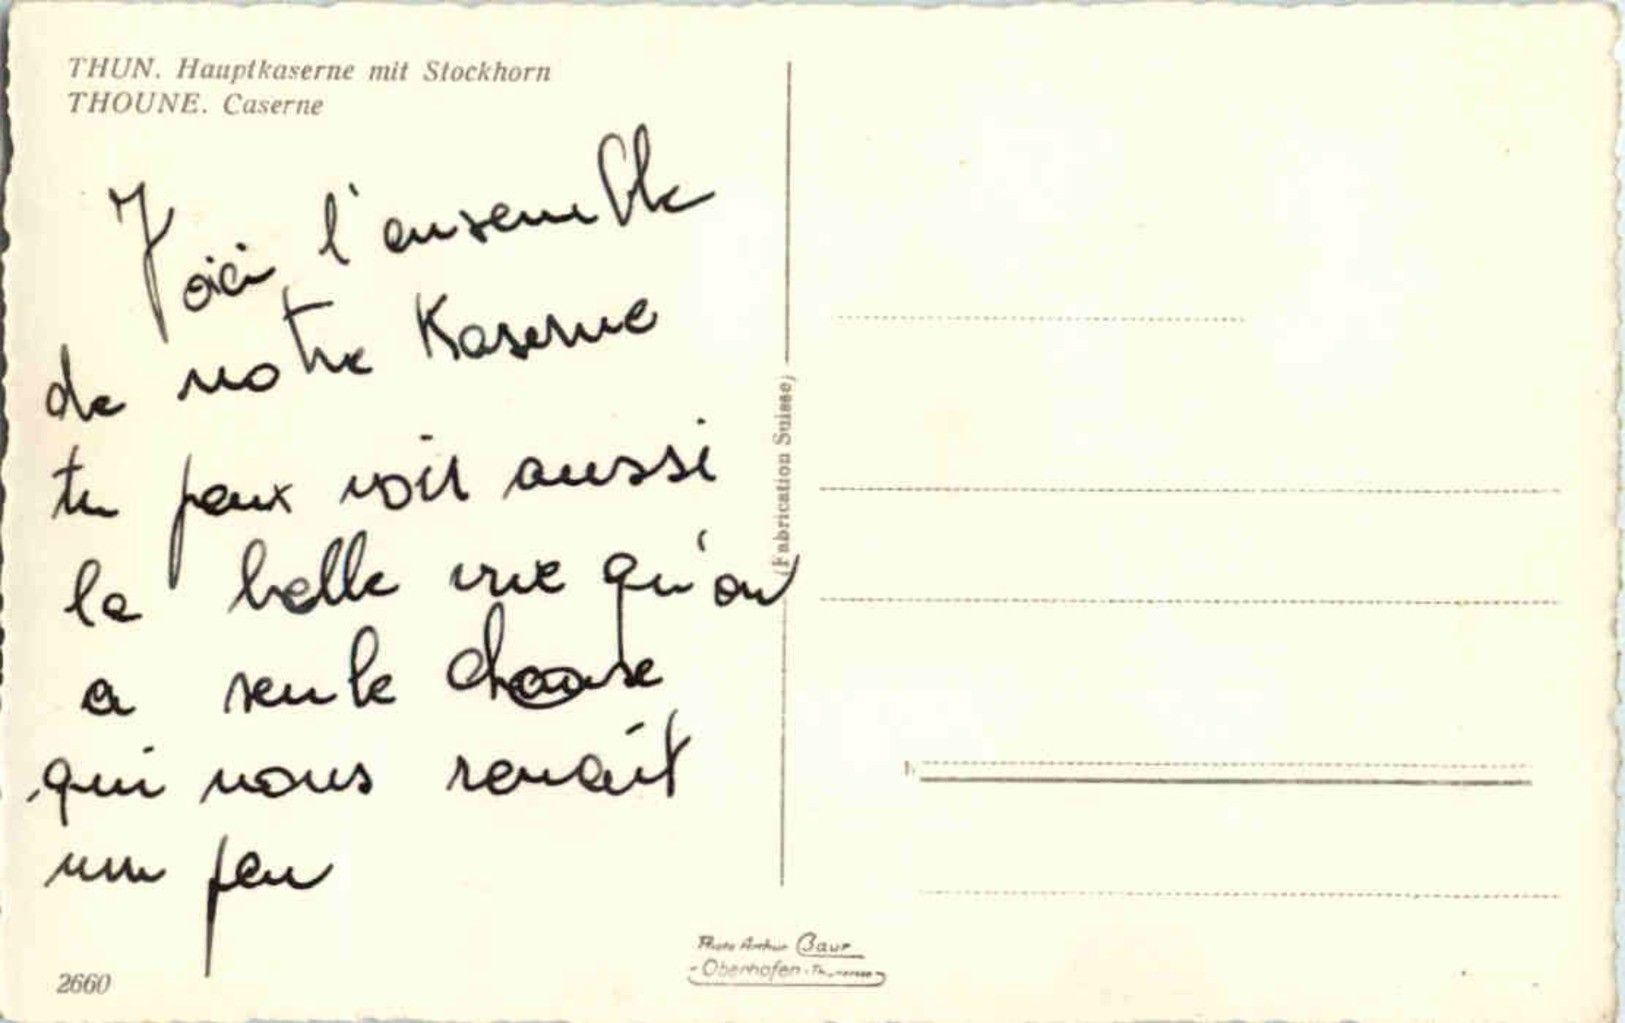 THUN. Hauptkaserne mit Stockhorn
THOUNE. Caserne
Voici l'ensemble
de notre Kaserne
tu peux voir aussi
la belle vue qu'on
a seule chose
qui nous
un peu
(Fabrication Suisse)
2660
Photo Arthur Baur
Oberhofen